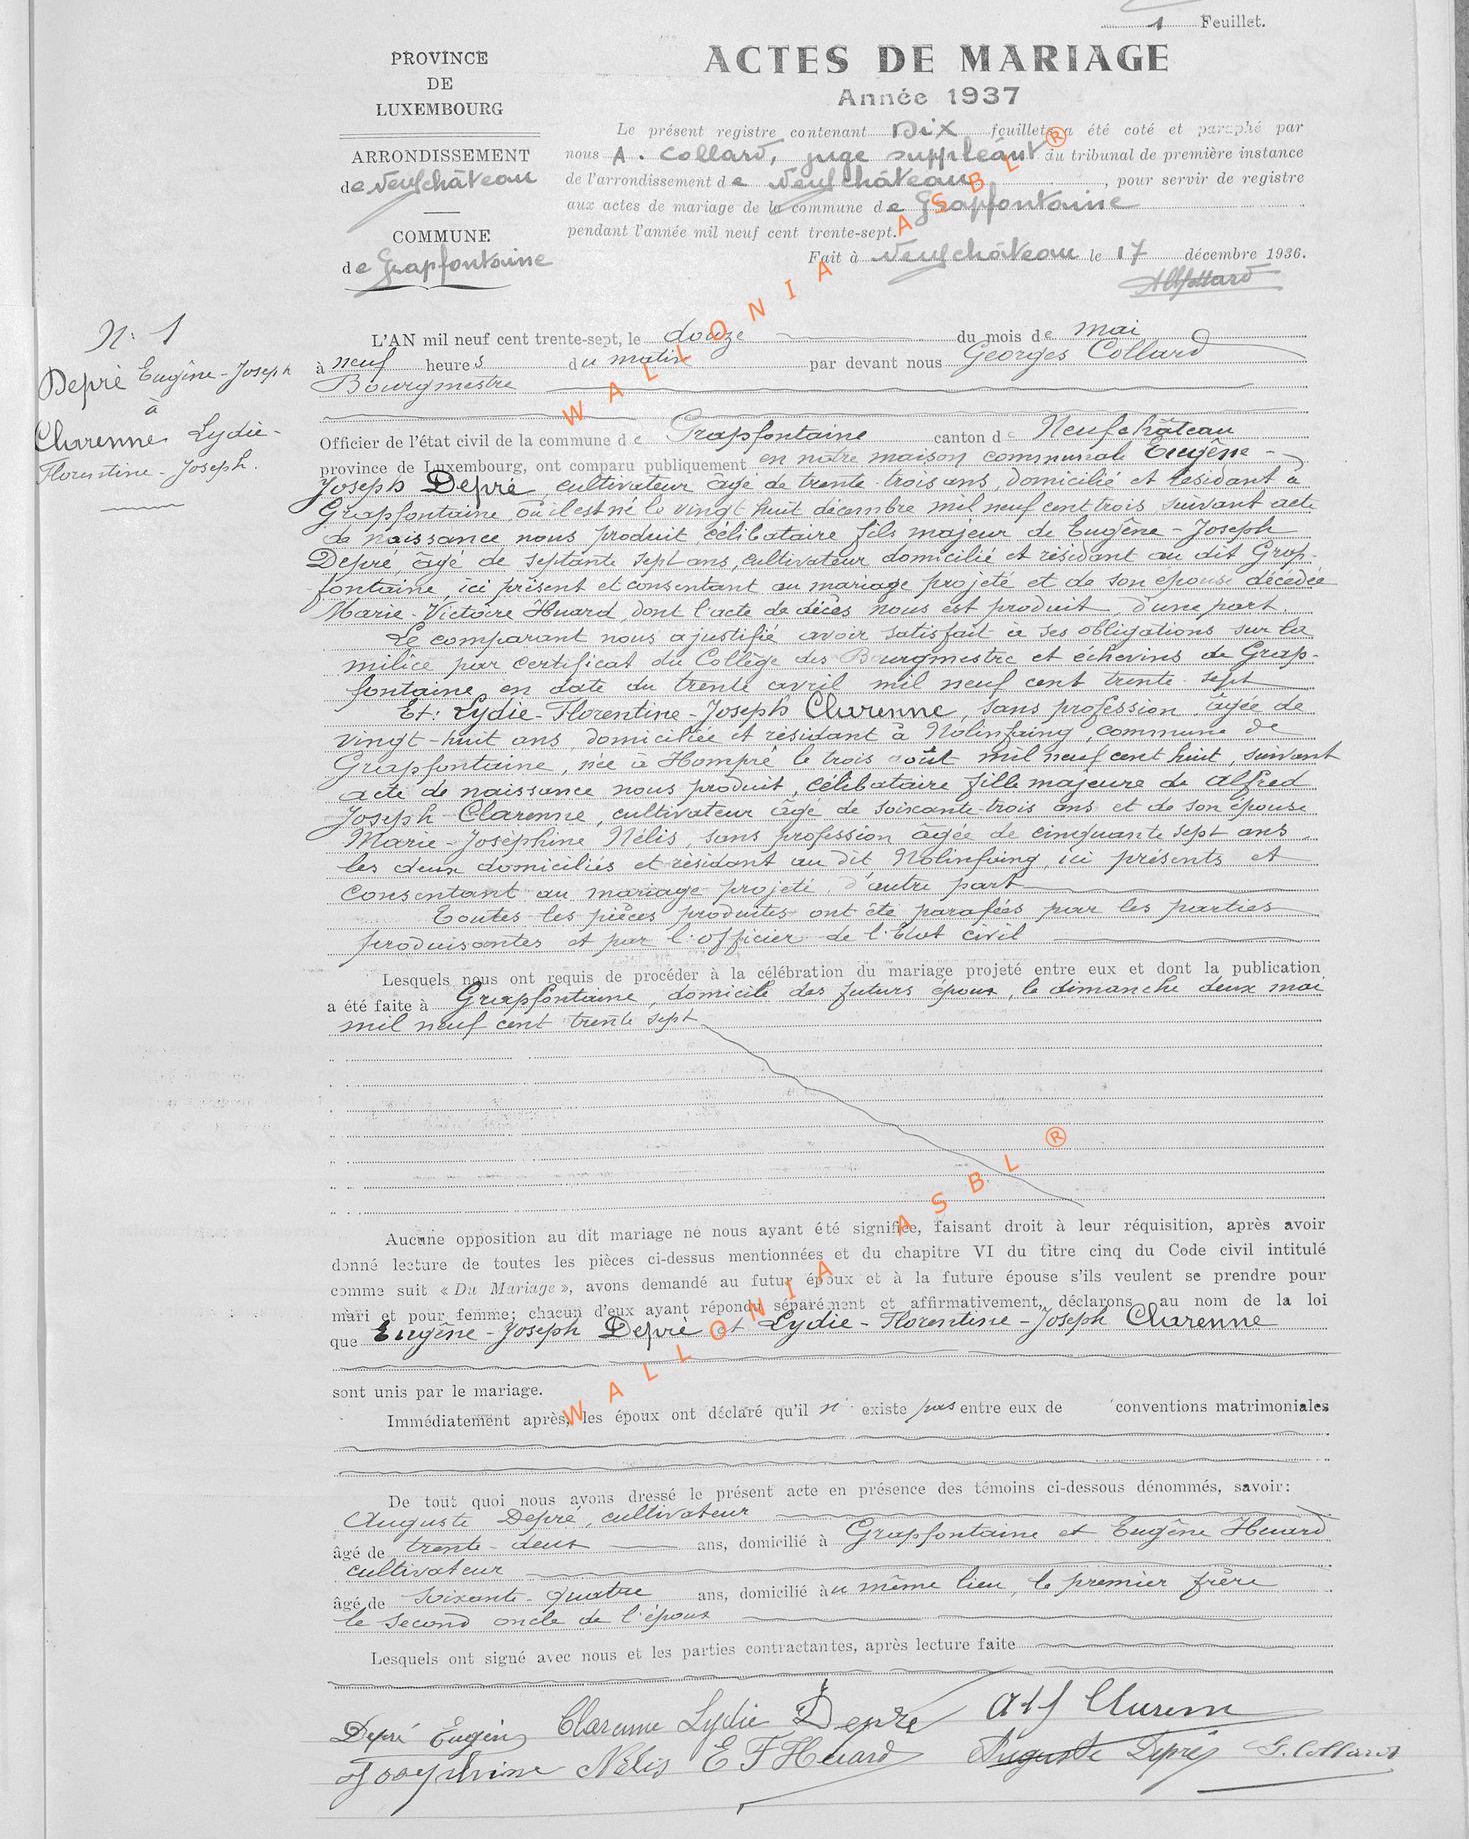 1 Feuillet.
PROVINCE
DE
LUXEMBOURG
ARRONDISSEMENT
de Neufchâteau
COMMUNE
de Grapfontaine
ACTES DE MARIAGE
Année 1937
Le présent registre contenant Dix feuillets a été coté et paraphé par
nous A. Collard, juge suppléant du tribunal de première instance
de l'arrondissement de Neufchâteau, pour servir de registre
aux actes de mariage de la commune de Grapfontaine
pendant l'année mil neuf cent trente-sept.
Fait à Neufchâteau le 17 décembre 1936.
ACollard
N: 1
Depré Eugène-Joseph
à
Clarenne Lydie-
Florentine-Joseph.
L'AN mil neuf cent trente-sept, le douze du mois de mai
à neuf heures du matin par devant nous Georges Collard
Bourgmestre
Officier de l'état civil de la commune de Grapfontaine canton de Neufchâteau
province de Luxembourg, ont comparu publiquement en notre maison communale Eugène-
Joseph Depré, cultivateur âgé de trente trois ans, domicilié et résidant à
Grapfontaine où il est né le vingt huit décembre mil neuf cent trois, suivant acte
de naissance nous produit célibataire fils majeur de Eugène-Joseph
Depré, âgé de septante sept ans, cultivateur domicilié et résidant au dit Grap-
fontaine, ici présent et consentant au mariage projeté et de son épouse décédée
Marie-Victoire Huard, dont l'acte de décès nous est produit, d'une part.
Le comparant nous a justifié avoir satisfait à ses obligations sur la
milice par certificat du Collège des Bourgmestre et échevins de Grap-
fontaine en date du trente avril mil neuf cent trente sept
Et: Lydie-Florentine-Joseph Clarenne, sans profession, âgée de
vingt-huit ans, domiciliée et résidant à Nolinfaing, commune de
Grapfontaine, née à Hompré le trois août mil neuf cent huit, suivant
acte de naissance nous produit, célibataire fille majeure de Alfred
Joseph Clarenne, cultivateur âgé de soixante-trois ans et de son épouse
Marie-Joséphine Nélis, sans profession âgée de cinquante sept ans
les deux domiciliés et résidant au dit Nolinfaing, ici présents et
consentant au mariage projeté, d'autre part
Toutes les pièces produites ont été parafées par les parties
produisantes et par l'officier de l'Etat civil
Lesquels nous ont requis de procéder à la célébration du mariage projeté entre eux et dont la publication
a été faite à Grapfontaine, domicile des futurs époux, le dimanche deux mai
mil neuf cent trente sept
Aucune opposition au dit mariage ne nous ayant été signifiée, faisant droit à leur réquisition, après avoir
donné lecture de toutes les pièces ci-dessus mentionnées et du chapitre VI du titre cinq du Code civil intitulé
comme suit « Du Mariage », avons demandé au futur époux et à la future épouse s'ils veulent se prendre pour
mari et pour femme; chacun d'eux ayant répondu séparément et affirmativement, déclarons au nom de la loi
que Eugène-Joseph Depré et Lydie-Florentine-Joseph Clarenne
sont unis par le mariage.
Immédiatement après, les époux ont déclaré qu'il n' existe pas entre eux de conventions matrimoniales
De tout quoi nous avons dressé le présent acte en présence des témoins ci-dessous dénommés, savoir:
Auguste Depré, cultivateur
âgé de trente-deux ans, domicilié à Grapfontaine et Eugène Huard
cultivateur
âgé de soixante-quatre ans, domicilié au même lieu, le premier frère
le second oncle de l'époux
Lesquels ont signé avec nous et les parties contractantes, après lecture faite
Depré Eugène Clarenne Lydie Depré Alf Clarenne
Joséphine Nélis E F Huard Auguste Depré G. Collard
WALLONIA ASBL ®
WALLONIA ASBL ®